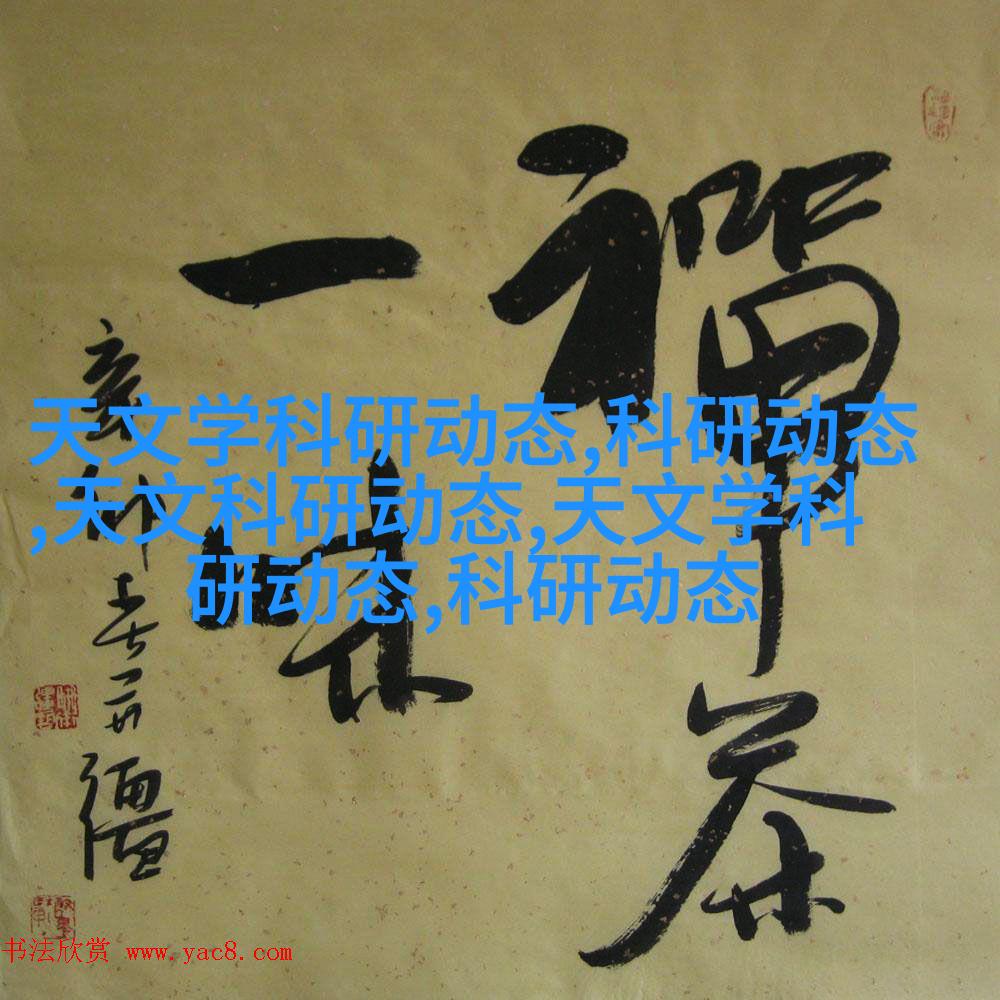 禪茶
一味
天文学科研动态,科研动态
,天文科研动态,天文学科
研动态,科研动态
书法欣赏 www.yac8.com